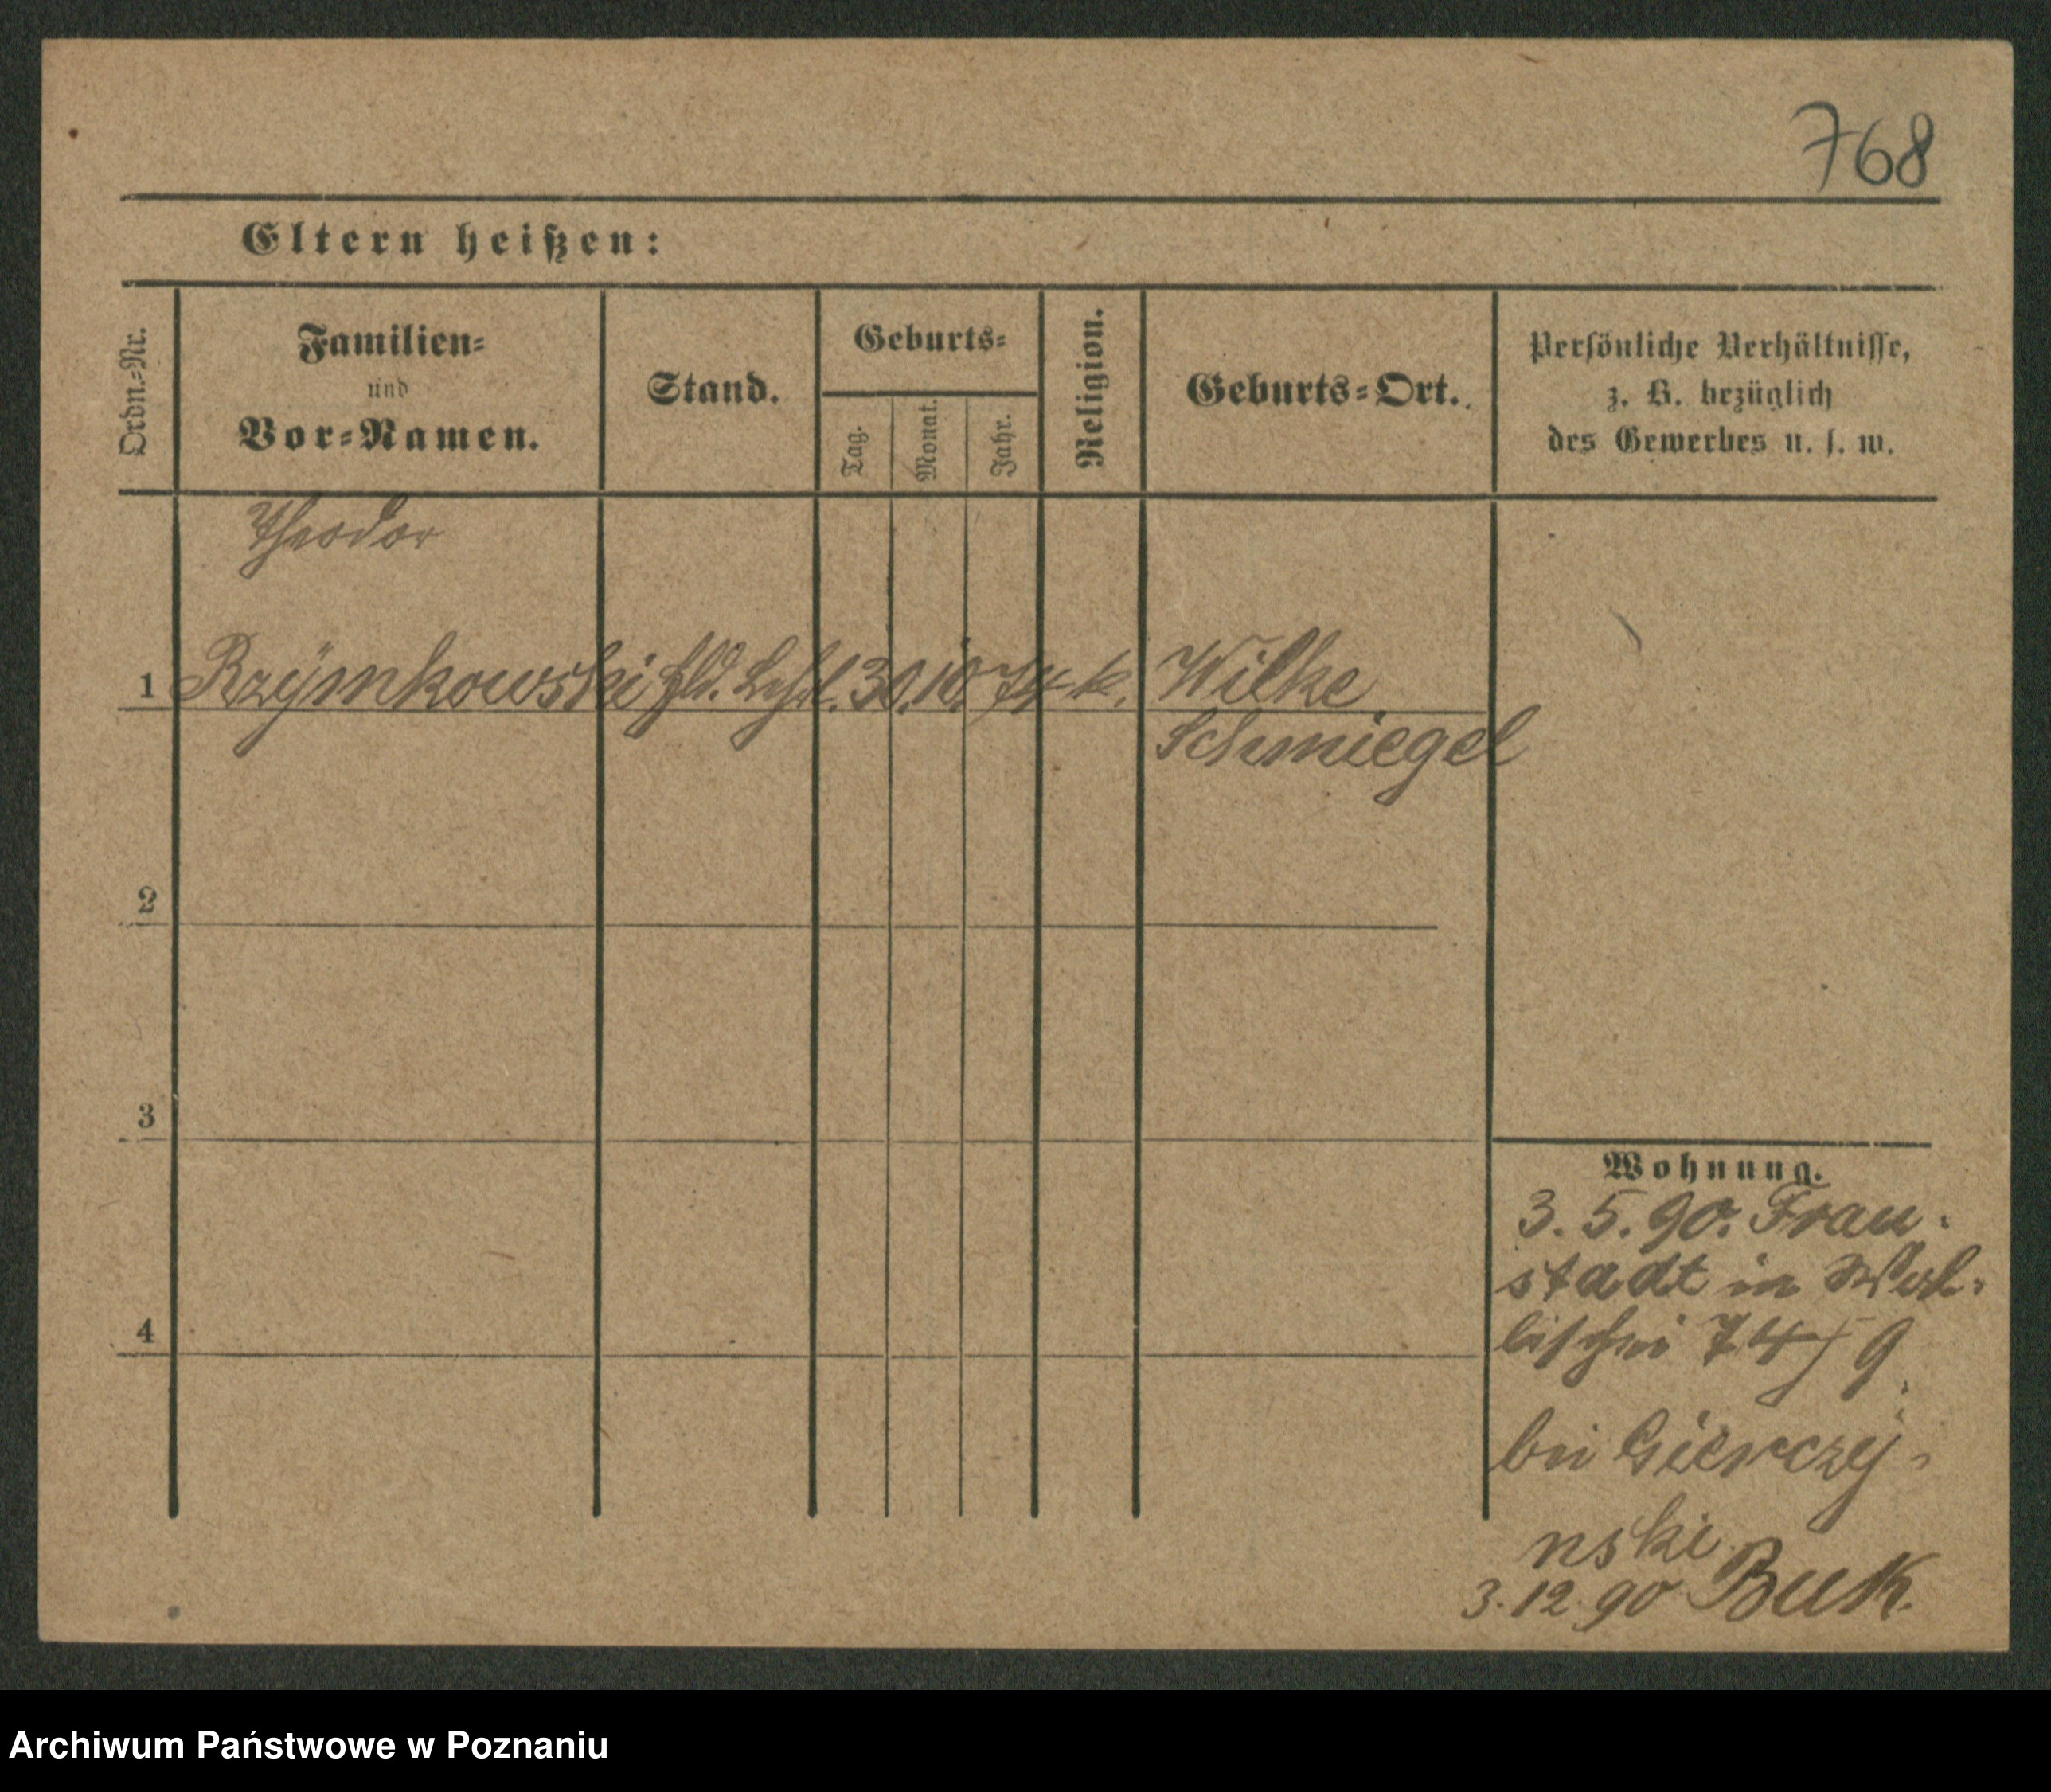 768
Eltern heißen:
Ordn.-Nr.
Familien-
und
Vor-Namen.
Stand.
Geburts-
Tag.
Monat.
Jahr.
Religion.
Geburts-Ort.
Persönliche Verhältnisse,
z. B. bezüglich
des Gewerbes u. s. w.
Theodor
1 Rzymkowski 30. 10. 74 k. Wilke
Schmiegel
2
3
4
Wohnung.
3. 5. 90. Frau-
stadt in Wal-
lischei 74/9
bei Gierczy-
nski
3. 12. 90 Buk.
Archiwum Państwowe w Poznaniu